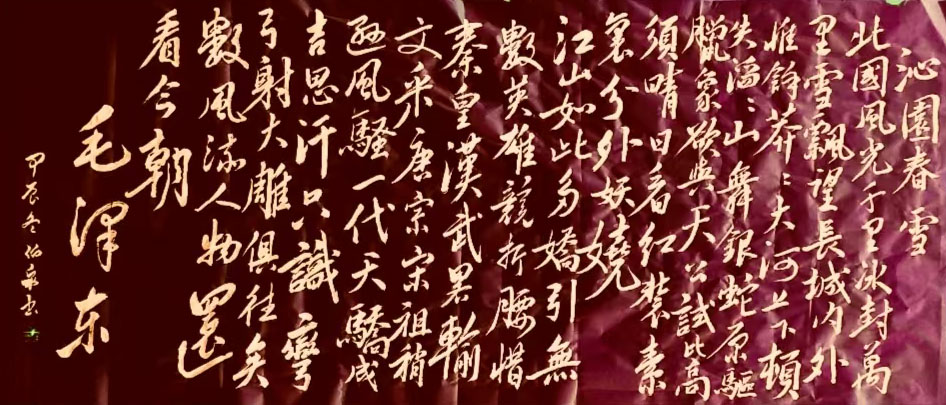 沁園春 雪
北國風光千里冰封萬
里雪飄望長城内外
惟餘莽〻大河上下頓
失滔〻山舞銀蛇原驅
臘象欲與天公試比高
須晴日看紅裝素
裹分外妖嬈
江山如此多嬌引無
數英雄競折腰惜
秦皇漢武畧輸
文采唐宗宋祖稍
遜風騷一代天驕成
吉思汗只識彎
弓射大雕俱往矣
數風流人物還
看今朝
毛澤东
甲辰冬伯泉书